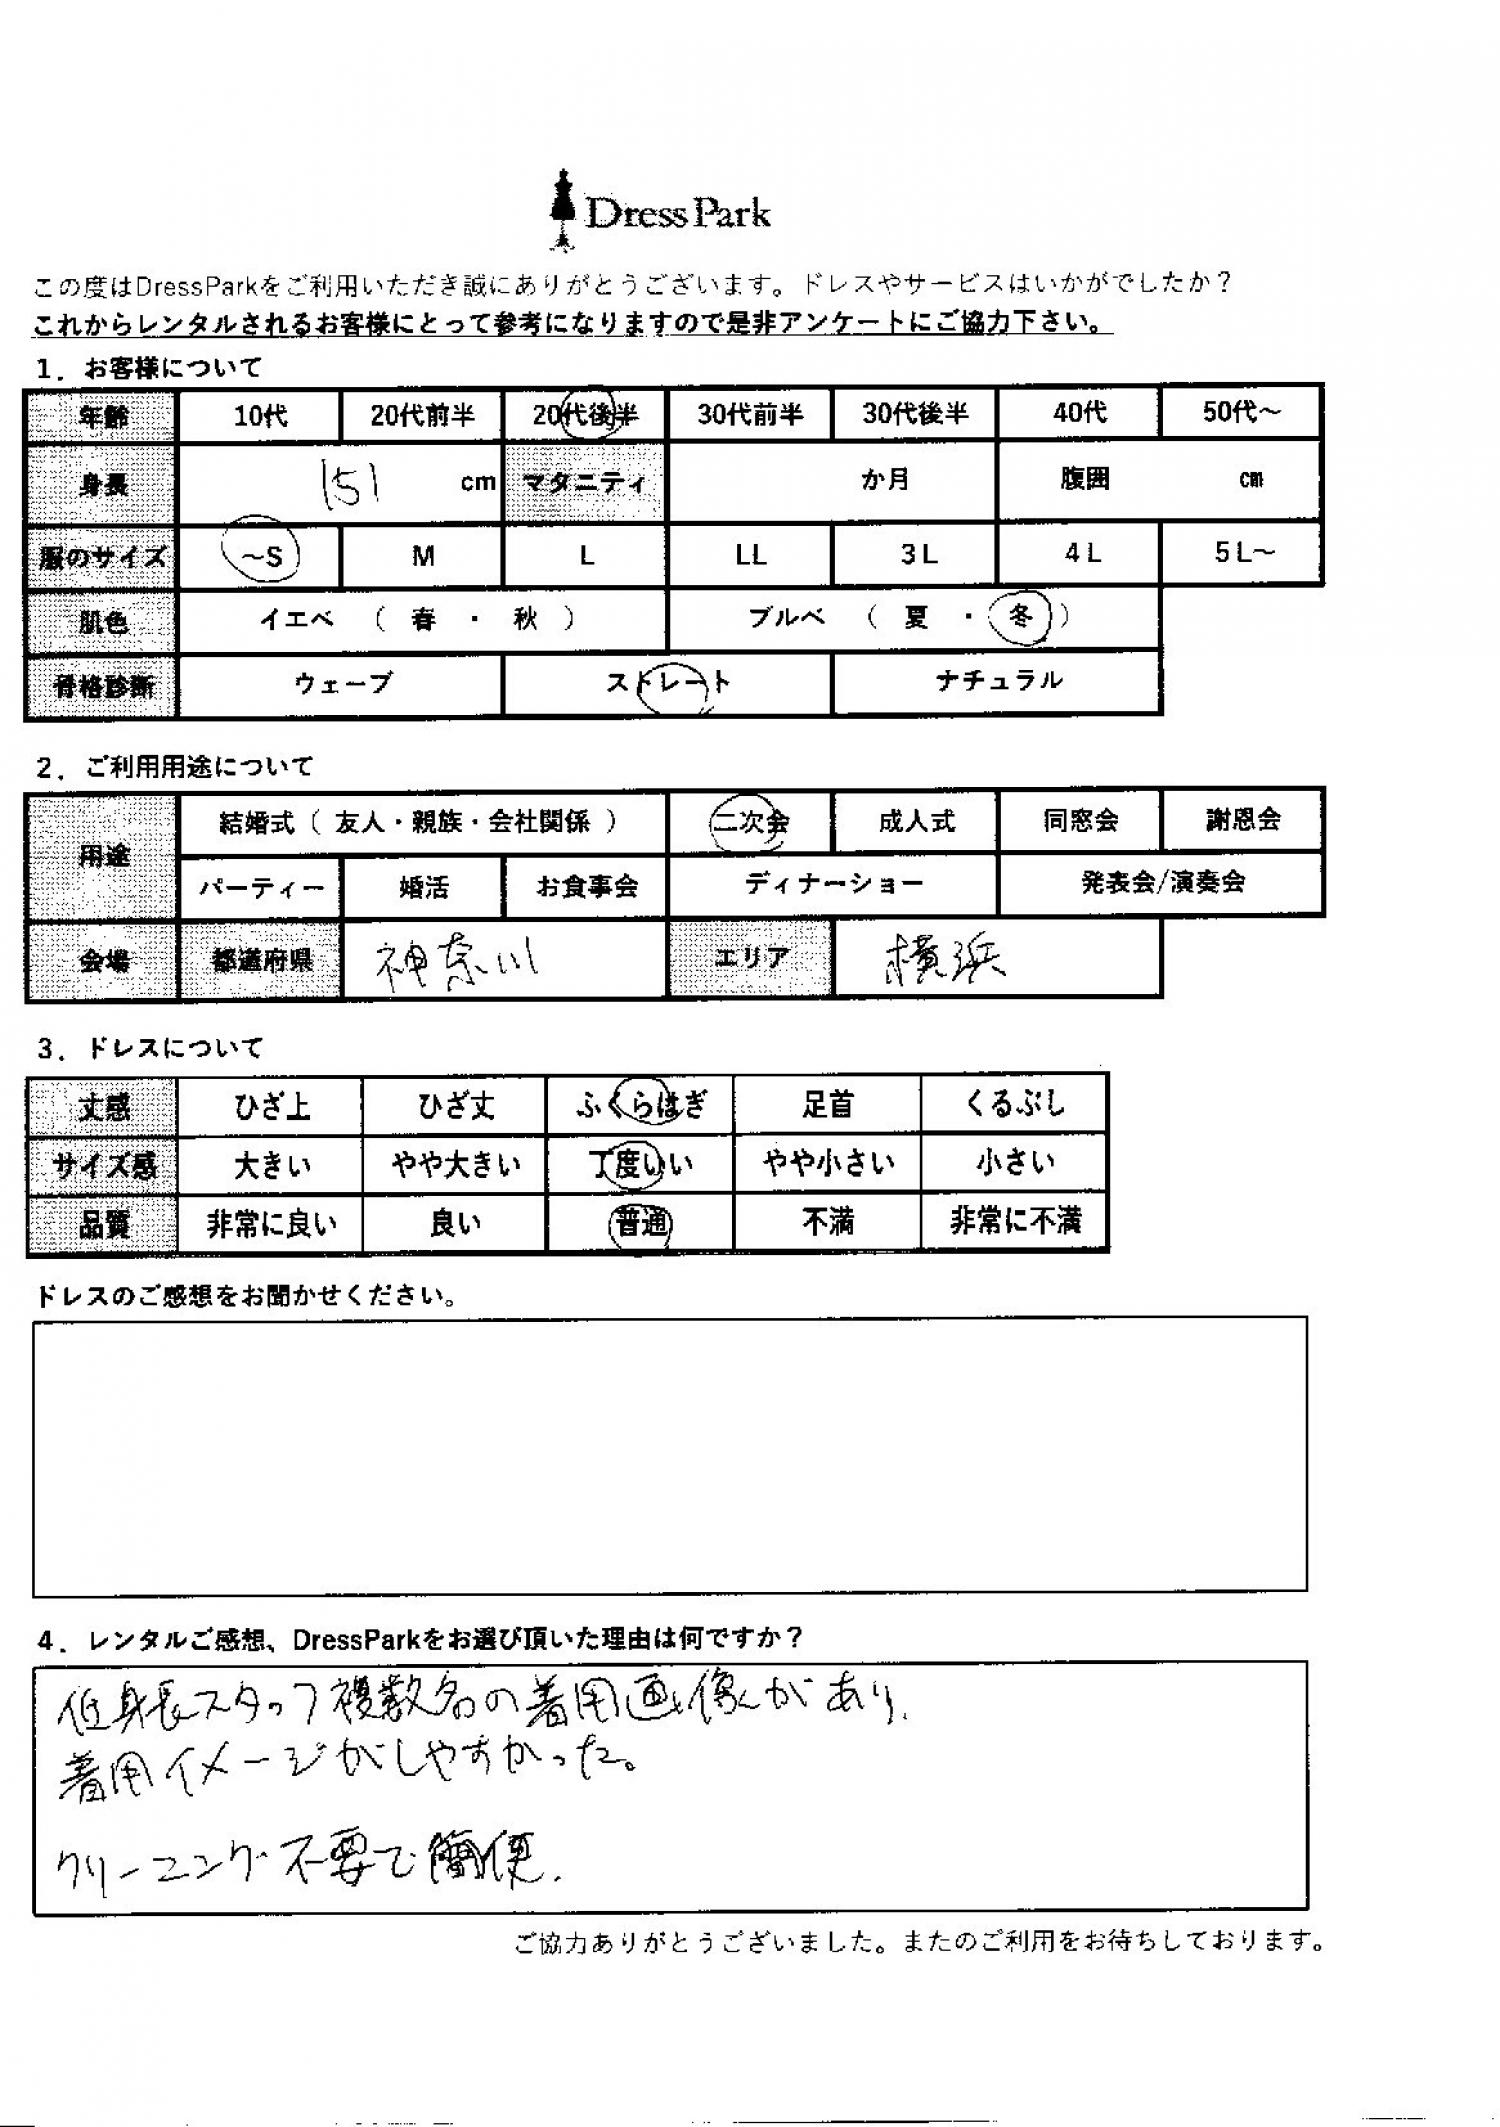 DressPark
この度はDressParkをご利用いただき誠にありがとうございます。ドレスやサービスはいかがでしたか？
これからレンタルされるお客様にとって参考になりますので是非アンケートにご協力下さい。
1．お客様について
年齢 10代 20代前半 20代後半 30代前半 30代後半 40代 50代～
身長 151 cm マタニティ か月 腹囲 cm
服のサイズ ～S M L LL 3L 4L 5L～
肌色 イエベ （ 春 ・ 秋 ） ブルベ （ 夏 ・ 冬 ）
骨格診断 ウェーブ ストレート ナチュラル
2．ご利用用途について
用途 結婚式（ 友人・親族・会社関係 ） 二次会 成人式 同窓会 謝恩会
パーティー 婚活 お食事会 ディナーショー 発表会/演奏会
会場 都道府県 神奈川 エリア 横浜
3．ドレスについて
丈感 ひざ上 ひざ丈 ふくらはぎ 足首 くるぶし
サイズ感 大きい やや大きい 丁度いい やや小さい 小さい
品質 非常に良い 良い 普通 不満 非常に不満
ドレスのご感想をお聞かせください。
4．レンタルご感想、DressParkをお選び頂いた理由は何ですか？
低身長スタッフ複数名の着用画像があり、
着用イメージがしやすかった。
クリーニング不要で簡便.
ご協力ありがとうございました。またのご利用をお待ちしております。